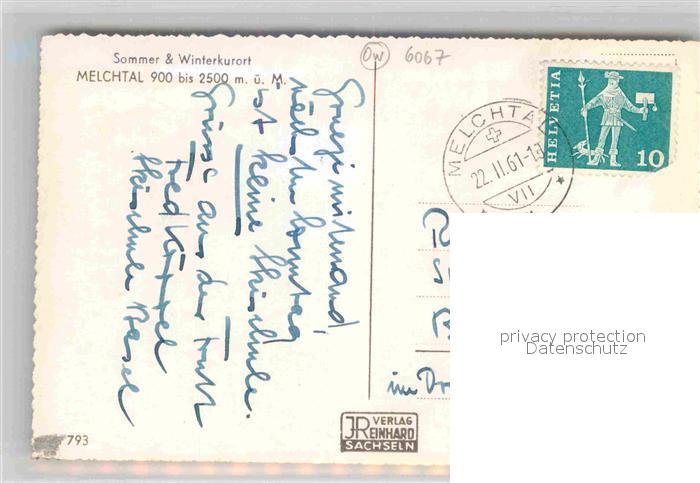 Sommer & Winterkurort
MELCHTAL 900 bis 2500 m. ü. M.
OW 6067
HELVETIA
10
MELCHTAL
22. II. 61-1
VII
Gruezi mitenand,
nächsten Sonntag
ist keine Skischule.
Grüsse aus der Frutt
Fred
Skischule Basel
im
793
JR VERLAG
REINHARD
SACHSELN
privacy protection
Datenschutz